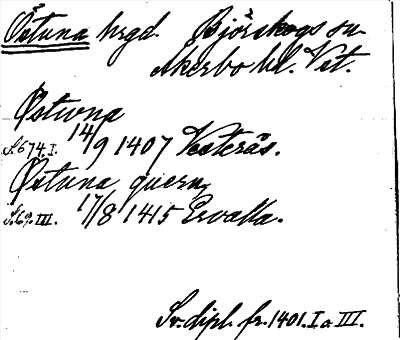 Östuna hrgd. Björskogs sn
Åkerbo hd. Vst.
Østwna
S. 674 I. 14/9 1407 Västerås.
Østuna quern
S. 69. III. 17/8 1415 Ervalla.
Sv. dipl. fr. 1401. I o. III.